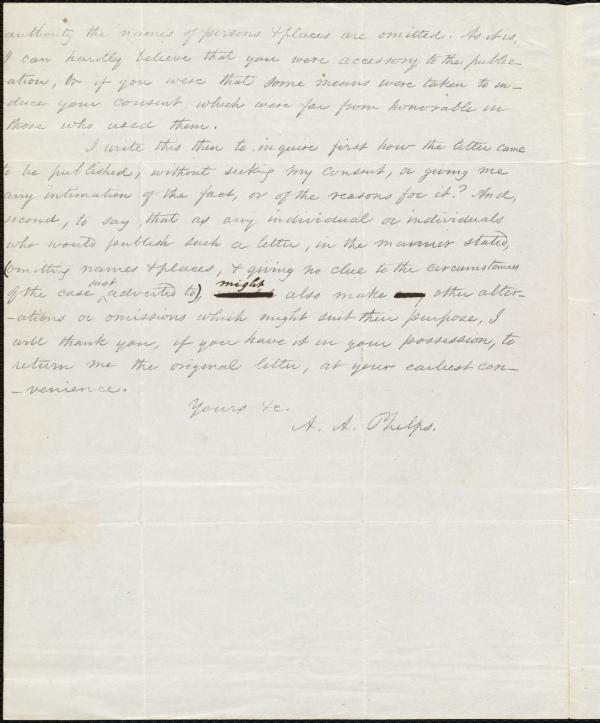 authority the names of persons & places are omitted. As it is,
I can hardly believe that you were accessory to the public-
ation, or if you were that some means were taken to in-
duce your consent, which were far from honorable in
those who used them.
I write this then to inquire first how the letter came
to be published, without seeking my consent, or giving me
any intimation of the fact, or of the reasons for it? And,
second, to say, that as any individual or individuals
who would publish such a letter, in the manner stated,
(omitting names & places, & giving no clue to the circumstances
of the case just adverted to), might also make other alter-
-ations or omissions which might suit their purpose, I
will thank you, if you have it in your possession, to
return me the original letter, at your earliest con-
-venience.
Yours &c.
A. A. Phelps.